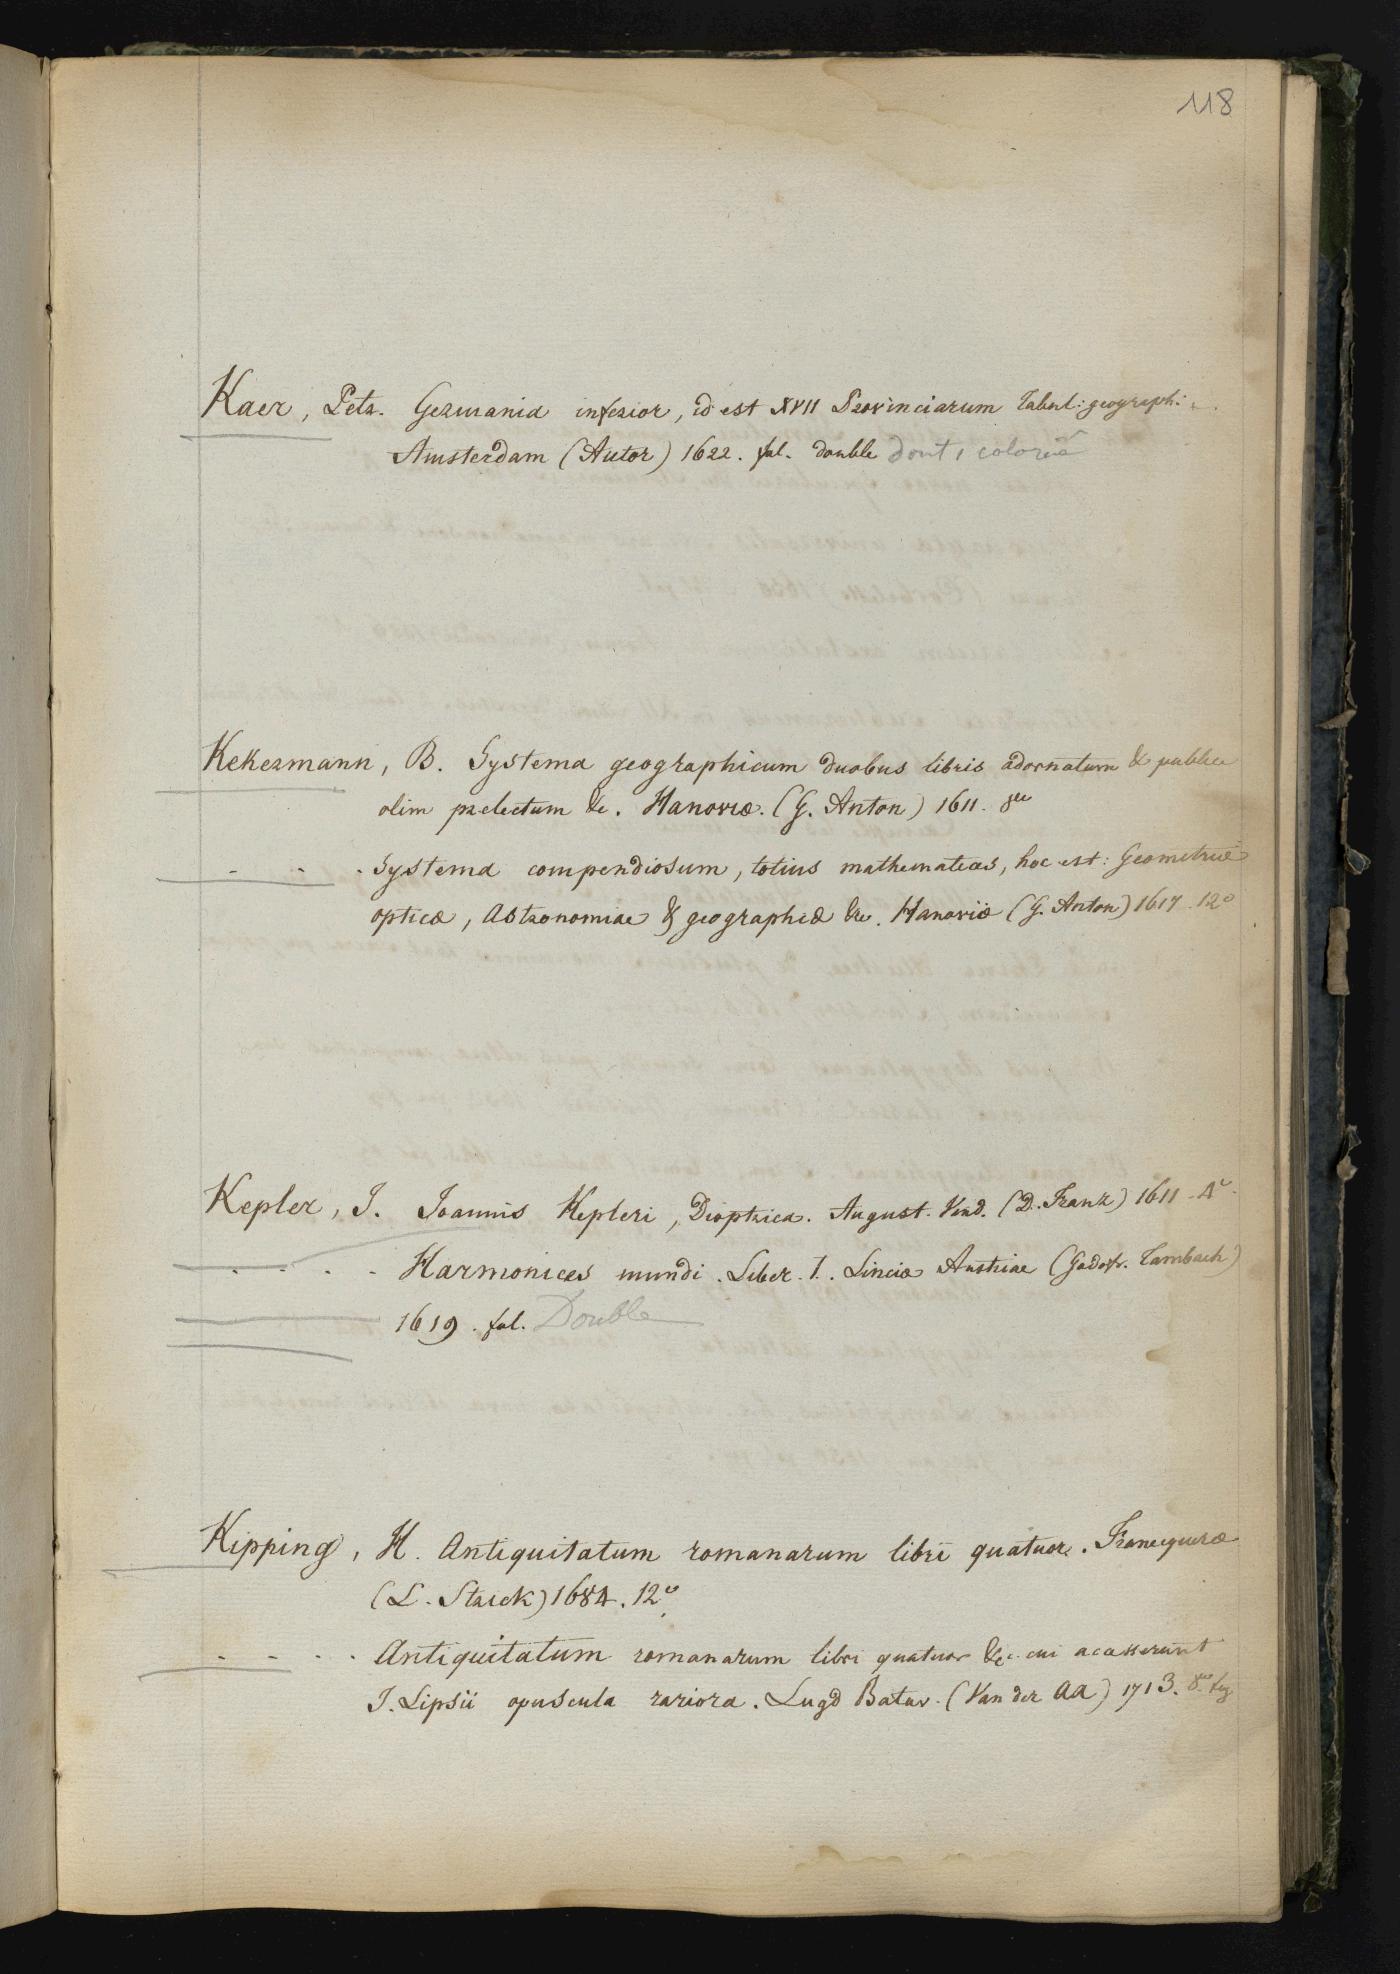 118
Kaer, Petr. Germania inferior, id est XVII Provinciarum Tabul: geograph:
Amsterdam (Autor) 1622. fol. double dont 1 colorié
Kekermann, B. Systema geographicum duobus libris adornatum & publice
olim prelectum &c. Hanoviæ. (G. Anton) 1611. 8vo
- - - . Systema compendiosum, totius mathematices, hoc est: Geometriæ
opticæ, Astronomiae & geographiæ &c. Hanoviæ (G. Anton) 1617. 12o
Kepler, J. Joannis Kepleri, Dioptrica. August. Vind. (D. Franz) 1611. 4o
. . . . Harmonices mundi. Liber. 1. Linciæ Austriae (Godofr. Tambach)
1619. fol. Double
Kipping, H. Antiquitatum romanarum libri quatuor. Franequeræ
(L. Strick) 1684. 12o
- - - . Antiquitatum romanarum libri quatuor &c. cui accesserunt
J. Lipsii opuscula rariora. Lugd Batav. (Van der AA) 1713. 8vo fig